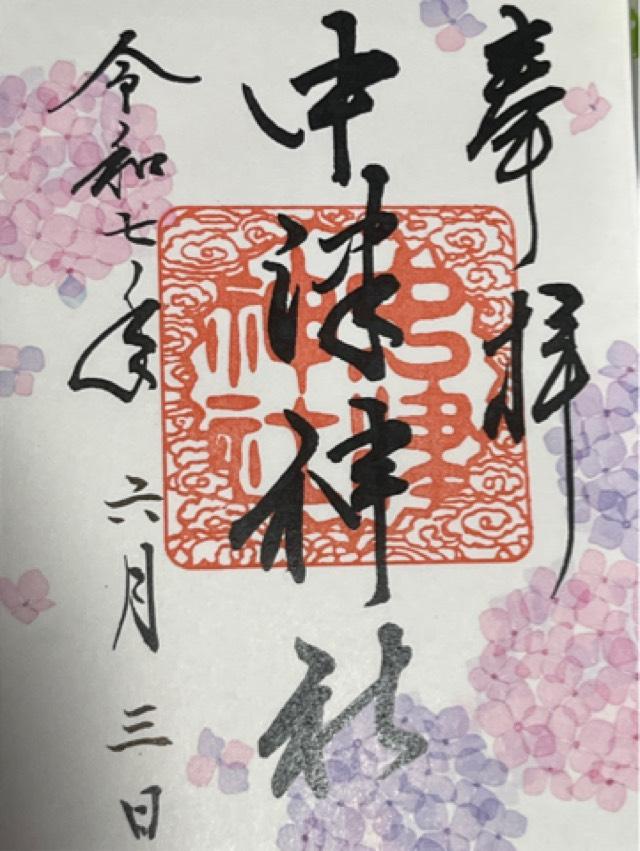 奉拝
中津神社
令和七年
六月三日
中津
神社